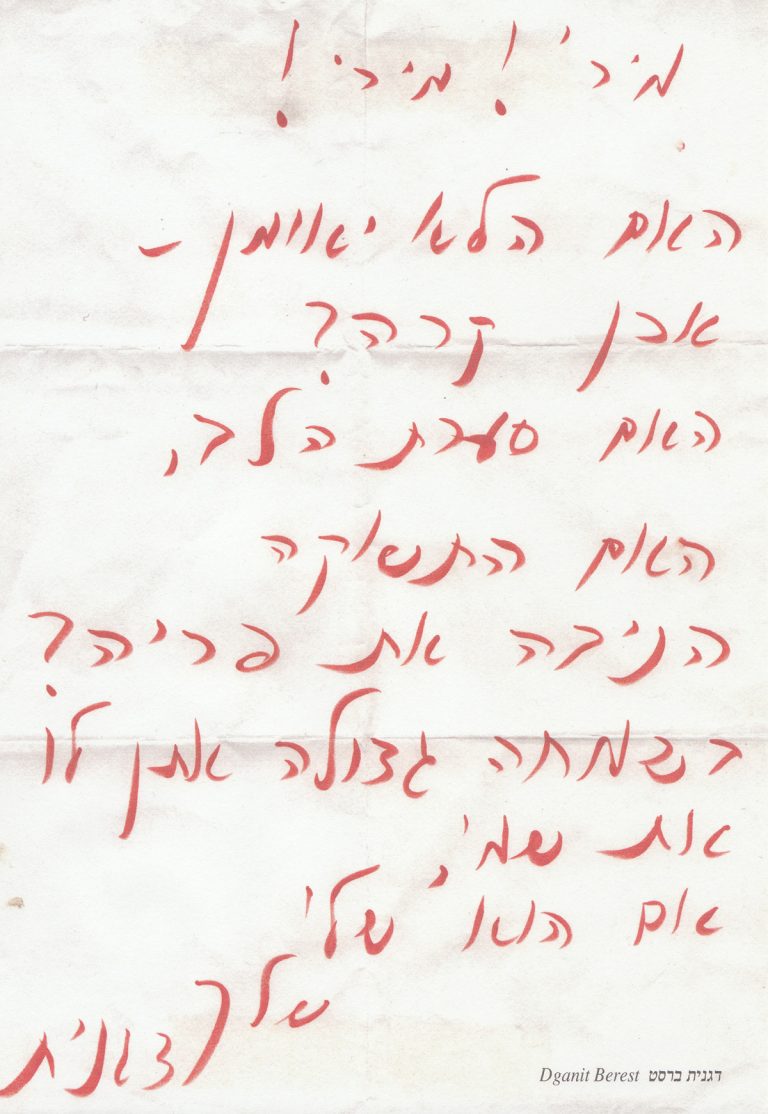 מירי! מירי!
האם הלא יאומן –
אכן קרה?
האם סערת הלב,
האם התשוקה
הניבה את פריה?
בשמחה גדולה אתן לו
את שמי,
אם הוא שלי
שלך
דגנית
Dganit Berest דגנית ברסט